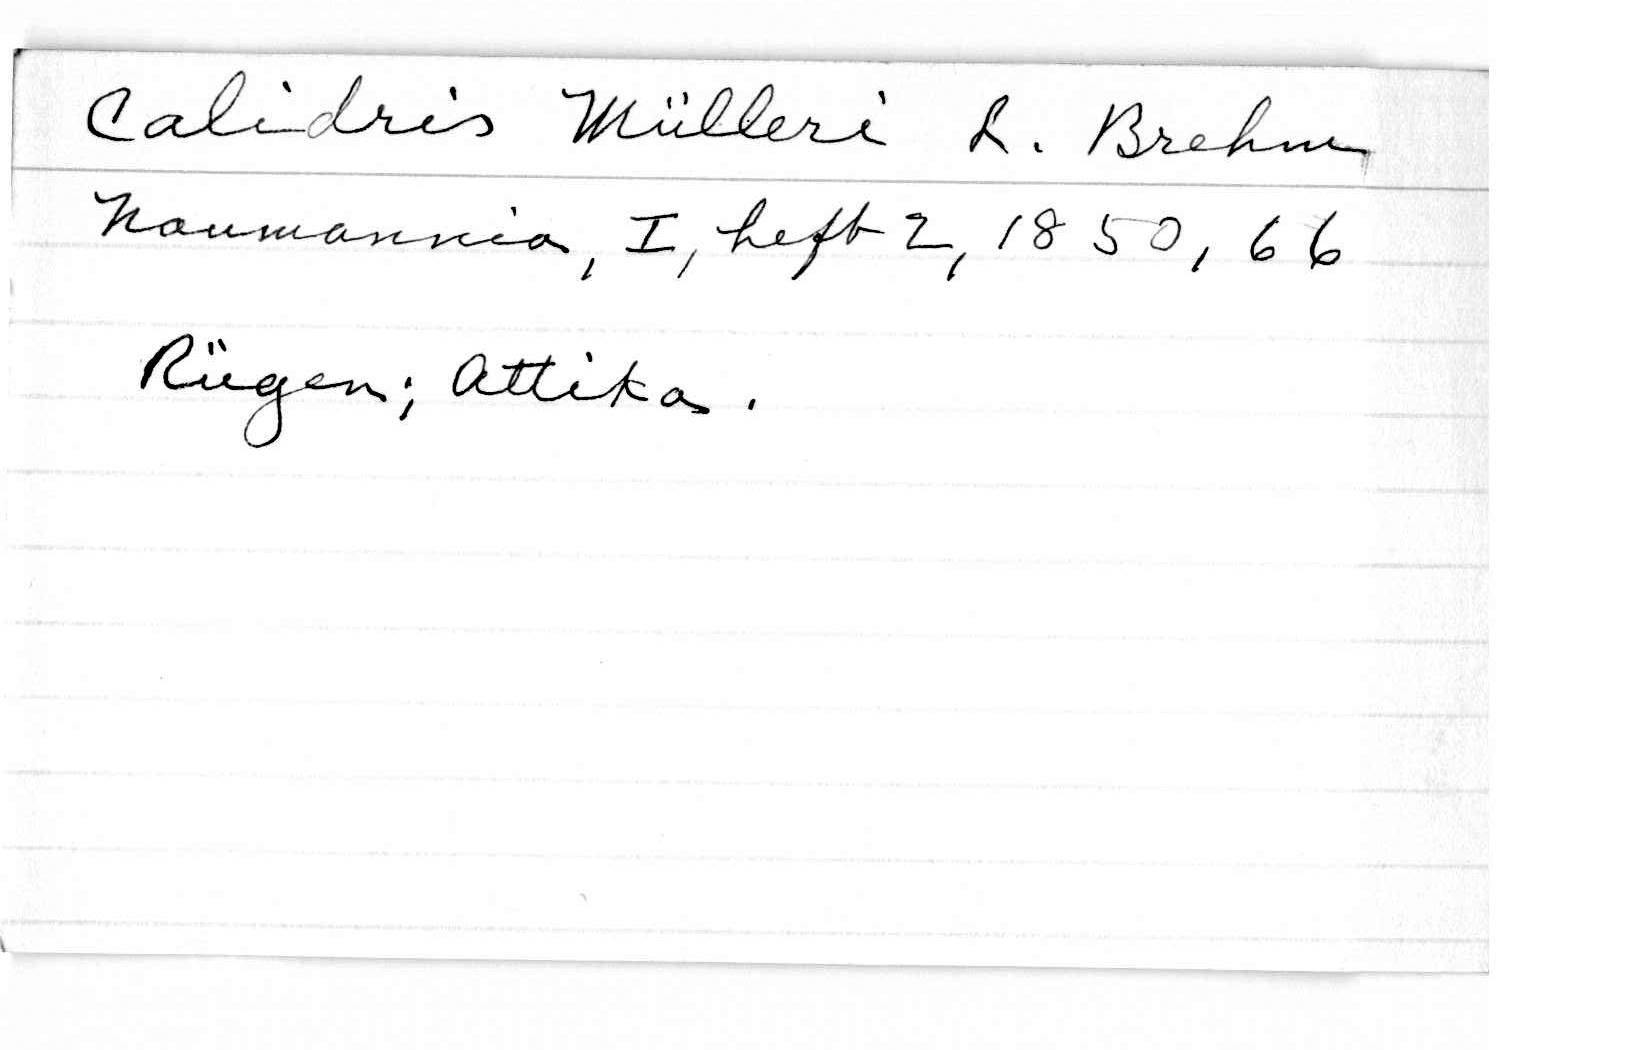 Calidris Mülleri L. Brehm
Naumannia, I, heft 2, 1850, 66
Rügen; Attika.